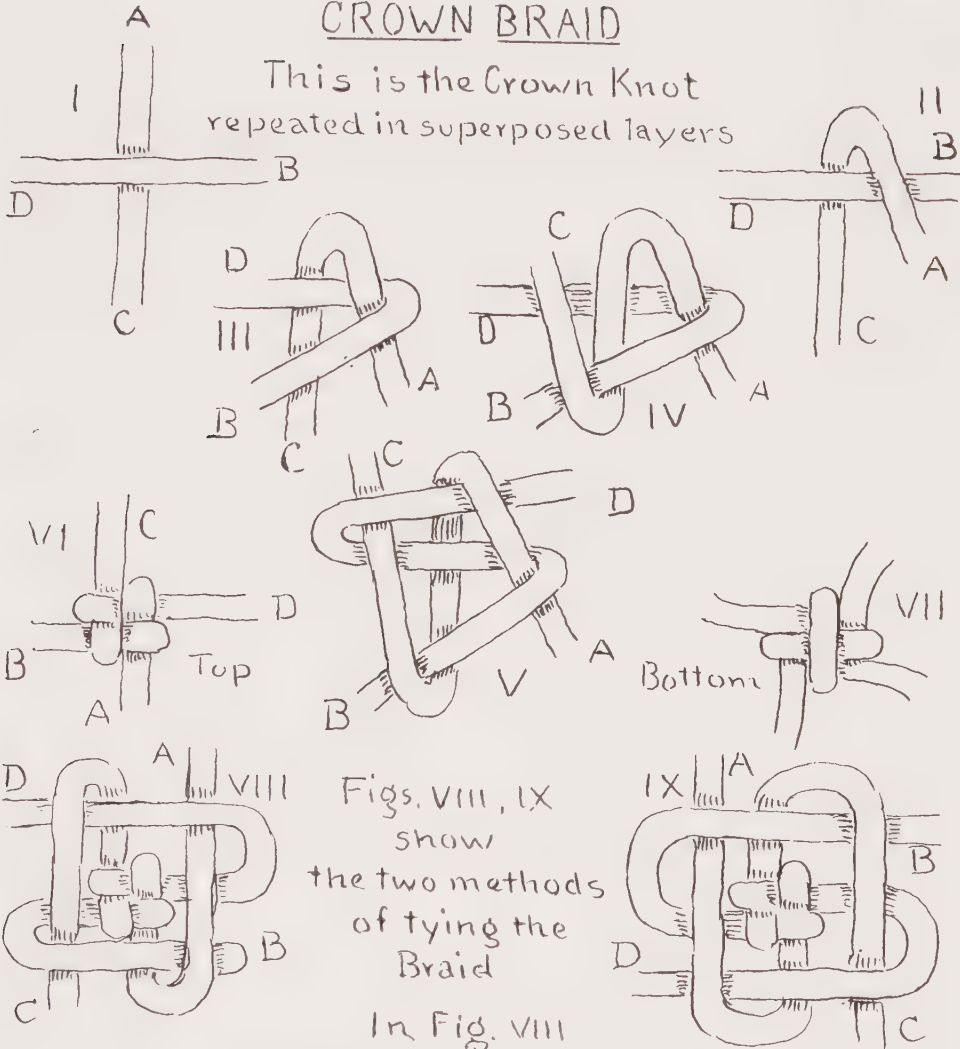 CROWN BRAID
This is the Crown Knot
repeated in superposed layers
A
I
B
D
C
II
B
D
A
C
D
III
B
C
A
C
D
B
IV
A
C
D
B
V
A
VI
C
D
B
A
Top
VII
Bottom
D
A
VIII
B
C
Figs. VIII, IX
show
the two methods
of tying the
Braid
In Fig. VIII
IX
A
B
D
C